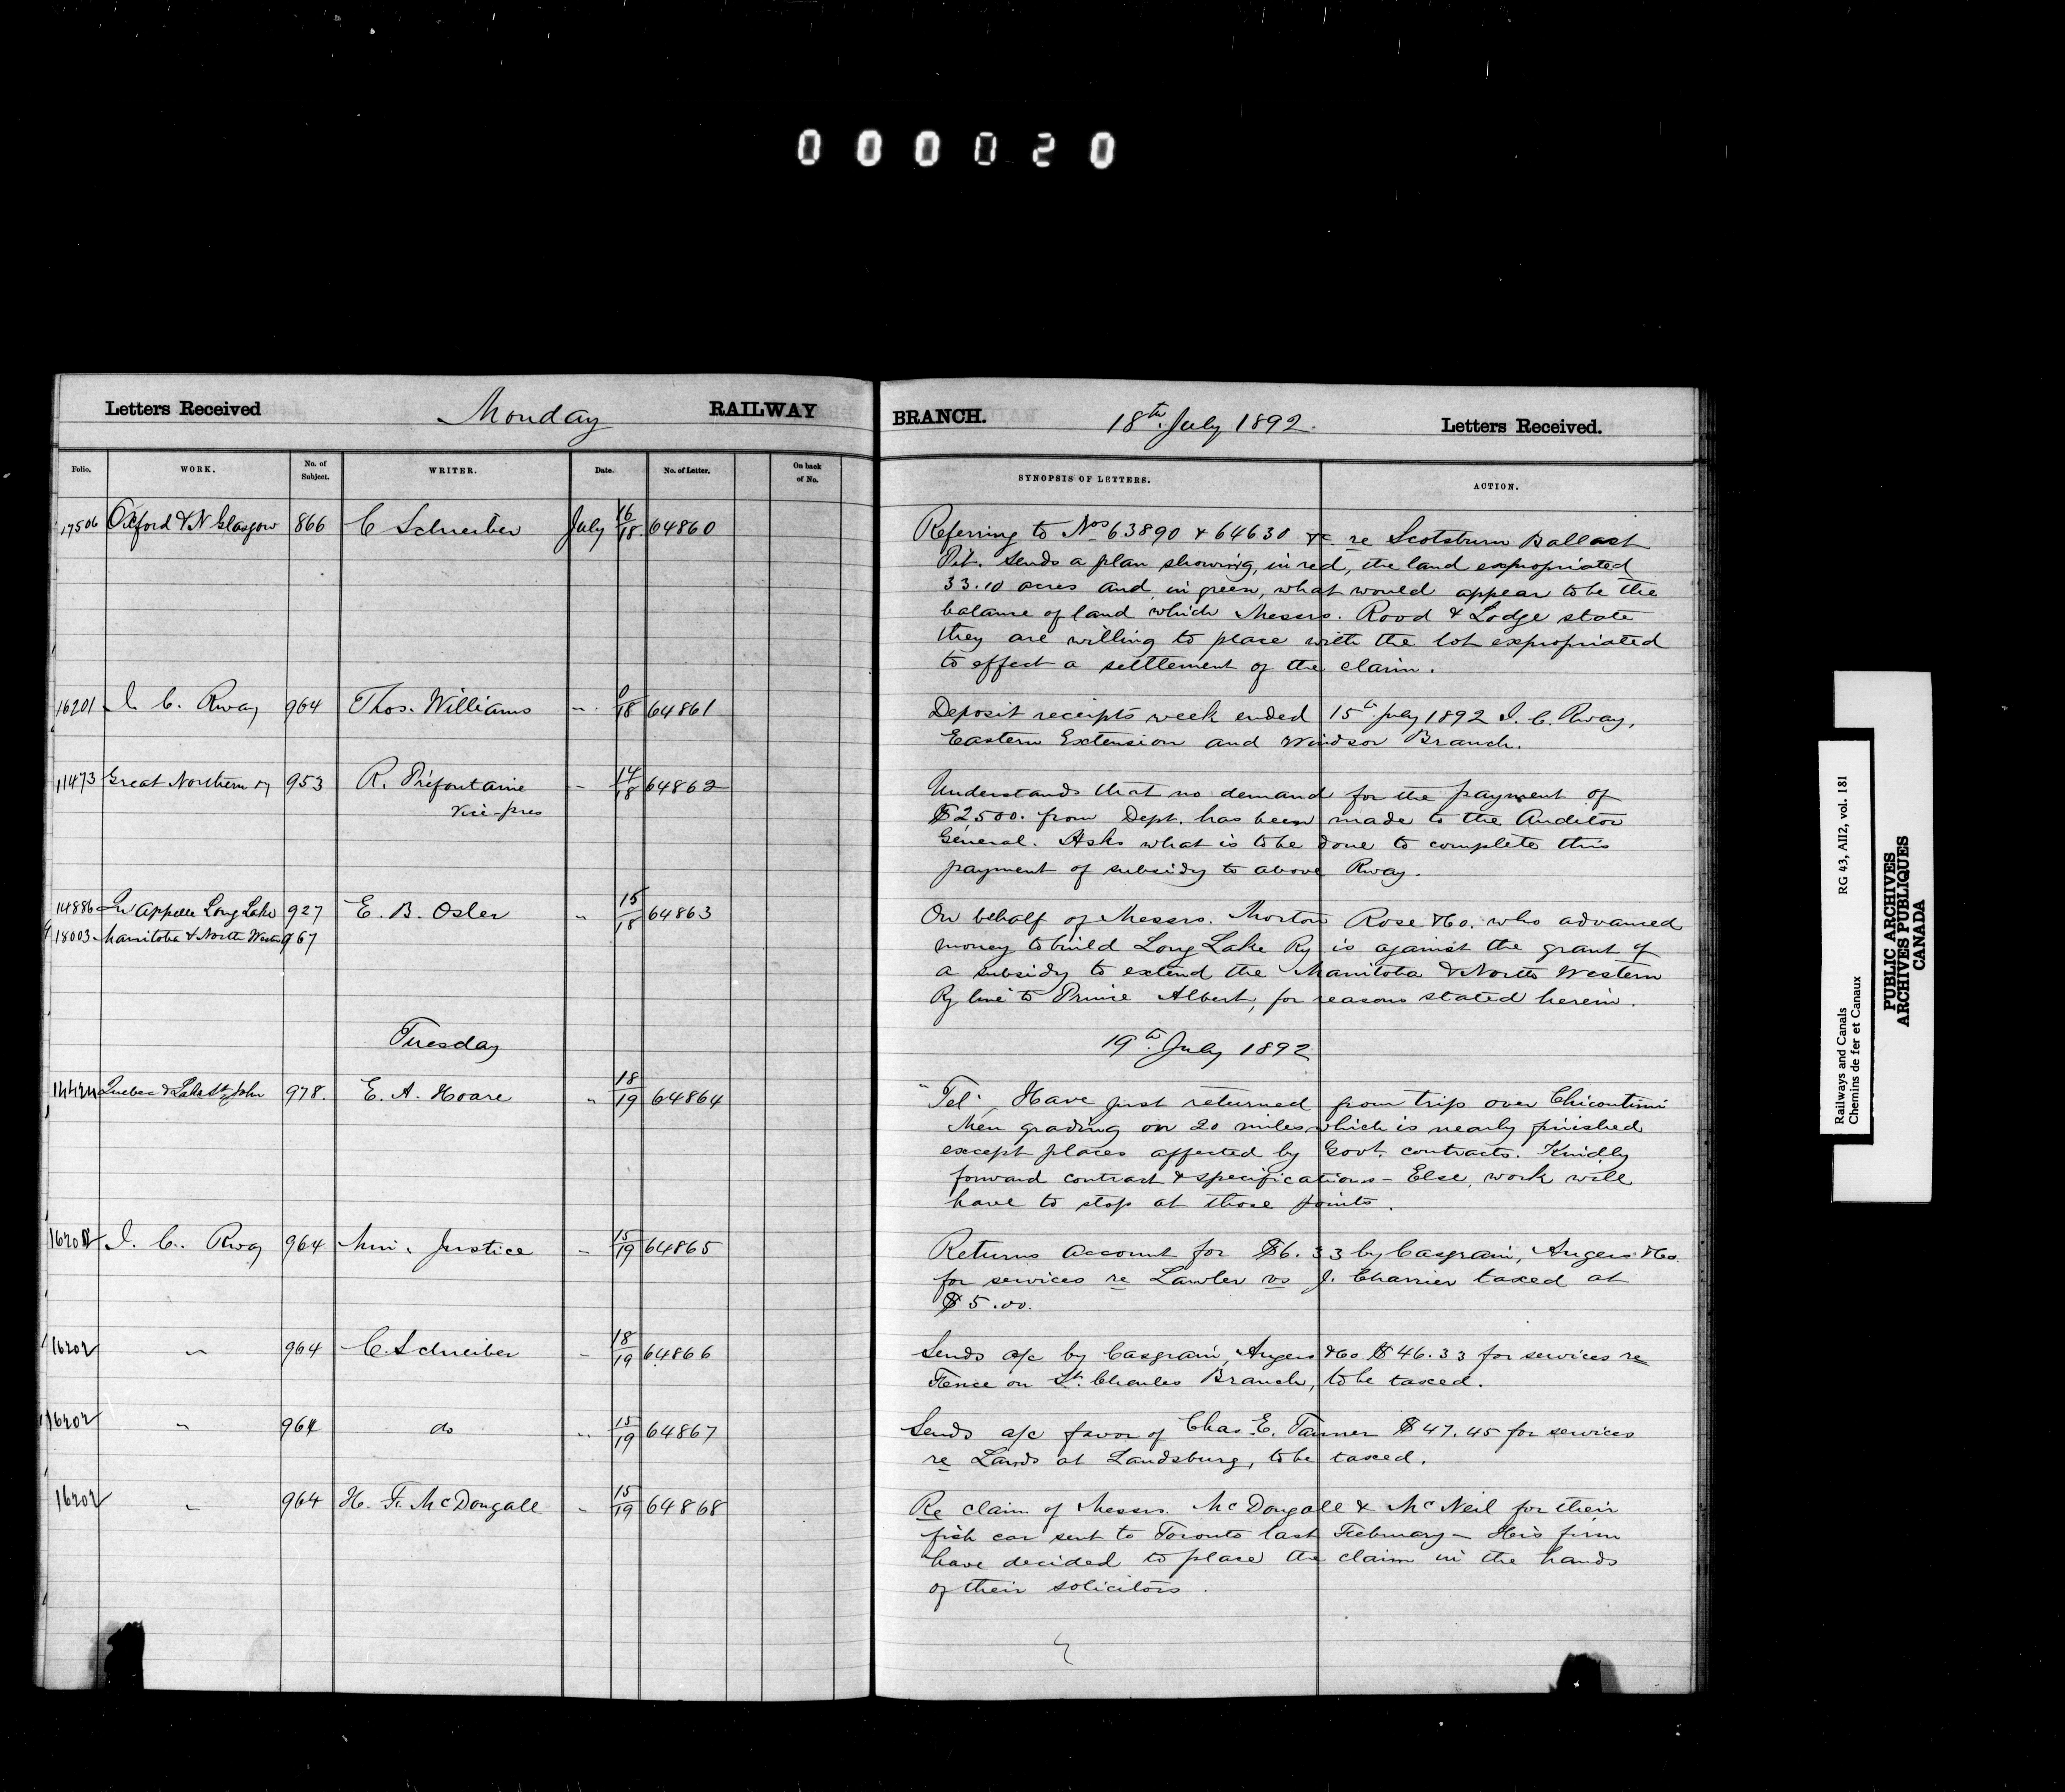 000020
Letters Received Monday RAILWAY BRANCH. 18th July 1892. Letters Received.
Folio. WORK. No. of Subject. WRITER. Date. No. of Letter. On back of No. SYNOPSIS OF LETTERS. ACTION.
17506 Oxford & N Glasgow 866 C Schreiber July 16/18 64860 Referring to Nos 63890 & 64630 &c re Scotsburn Ballast
Pit. Sends a plan showing, in red, the land expropriated
33.10 acres and in green, what would appear to be the
balance of land which Messrs. Rood & Lodge state
they are willing to place with the lot expropriated
to effect a settlement of the claim.
16201 I. C. Rway 964 Thos. Williams " /18 64861 Deposit receipts week ended 15th July 1892 I. C. Rway,
Eastern Extension and Windsor Branch.
11473 Great Northern Ry 953 R. Préfontaine " 14/18 64862 Understands that no demand for the payment of
Vice-pres $2500. from Dept. has been made to the Auditor
General. Asks what is to be done to complete this
payment of subsidy to above Rway.
14886 Qu'Appelle Long Lake 927 E. B. Osler " 15/18 64863 On behalf of Messrs. Morton Rose & Co. who advanced
18003 Manitoba & North Western 967 money to build Long Lake Ry is against the grant of
a subsidy to extend the Manitoba & North Western
Ry line to Prince Albert, for reasons stated herein.
Tuesday 19th July 1892
Quebec & Lake St John 978. E. A. Hoare " 18/19 64864 "Tel". Have just returned from trip over Chicoutimi
Men grading on 20 miles which is nearly finished
except places affected by Govt. contracts. Kindly
forward contract & specifications - Else, work will
have to stop at those points.
I. C. Rway 964 Min. Justice " 15/19 64865 Returns account for $6.33 by Casgrain, Angers & Co.
for services re Lawler vs J. Charrier taxed at
$5.00.
16202 " 964 C. Schreiber " 18/19 64866 Sends a/c by Casgrain, Angers & Co $46.33 for services re
Fence on St. Charles Branch, to be taxed.
16202 " 964 do " 15/19 64867 Sends a/c favor of Chas. E. Tanner $47.45 for services
re Lands at Landsburg, to be taxed.
16202 " 964 H. F. McDougall " 15/19 64868 Re claim of Messrs. McDougall & McNeil for their
fish car sent to Toronto last February - His firm
have decided to place the claim in the hands
of their solicitors.
Railways and Canals RG 43, AII2, vol. 181
Chemins de fer et Canaux
PUBLIC ARCHIVES
ARCHIVES PUBLIQUES
CANADA